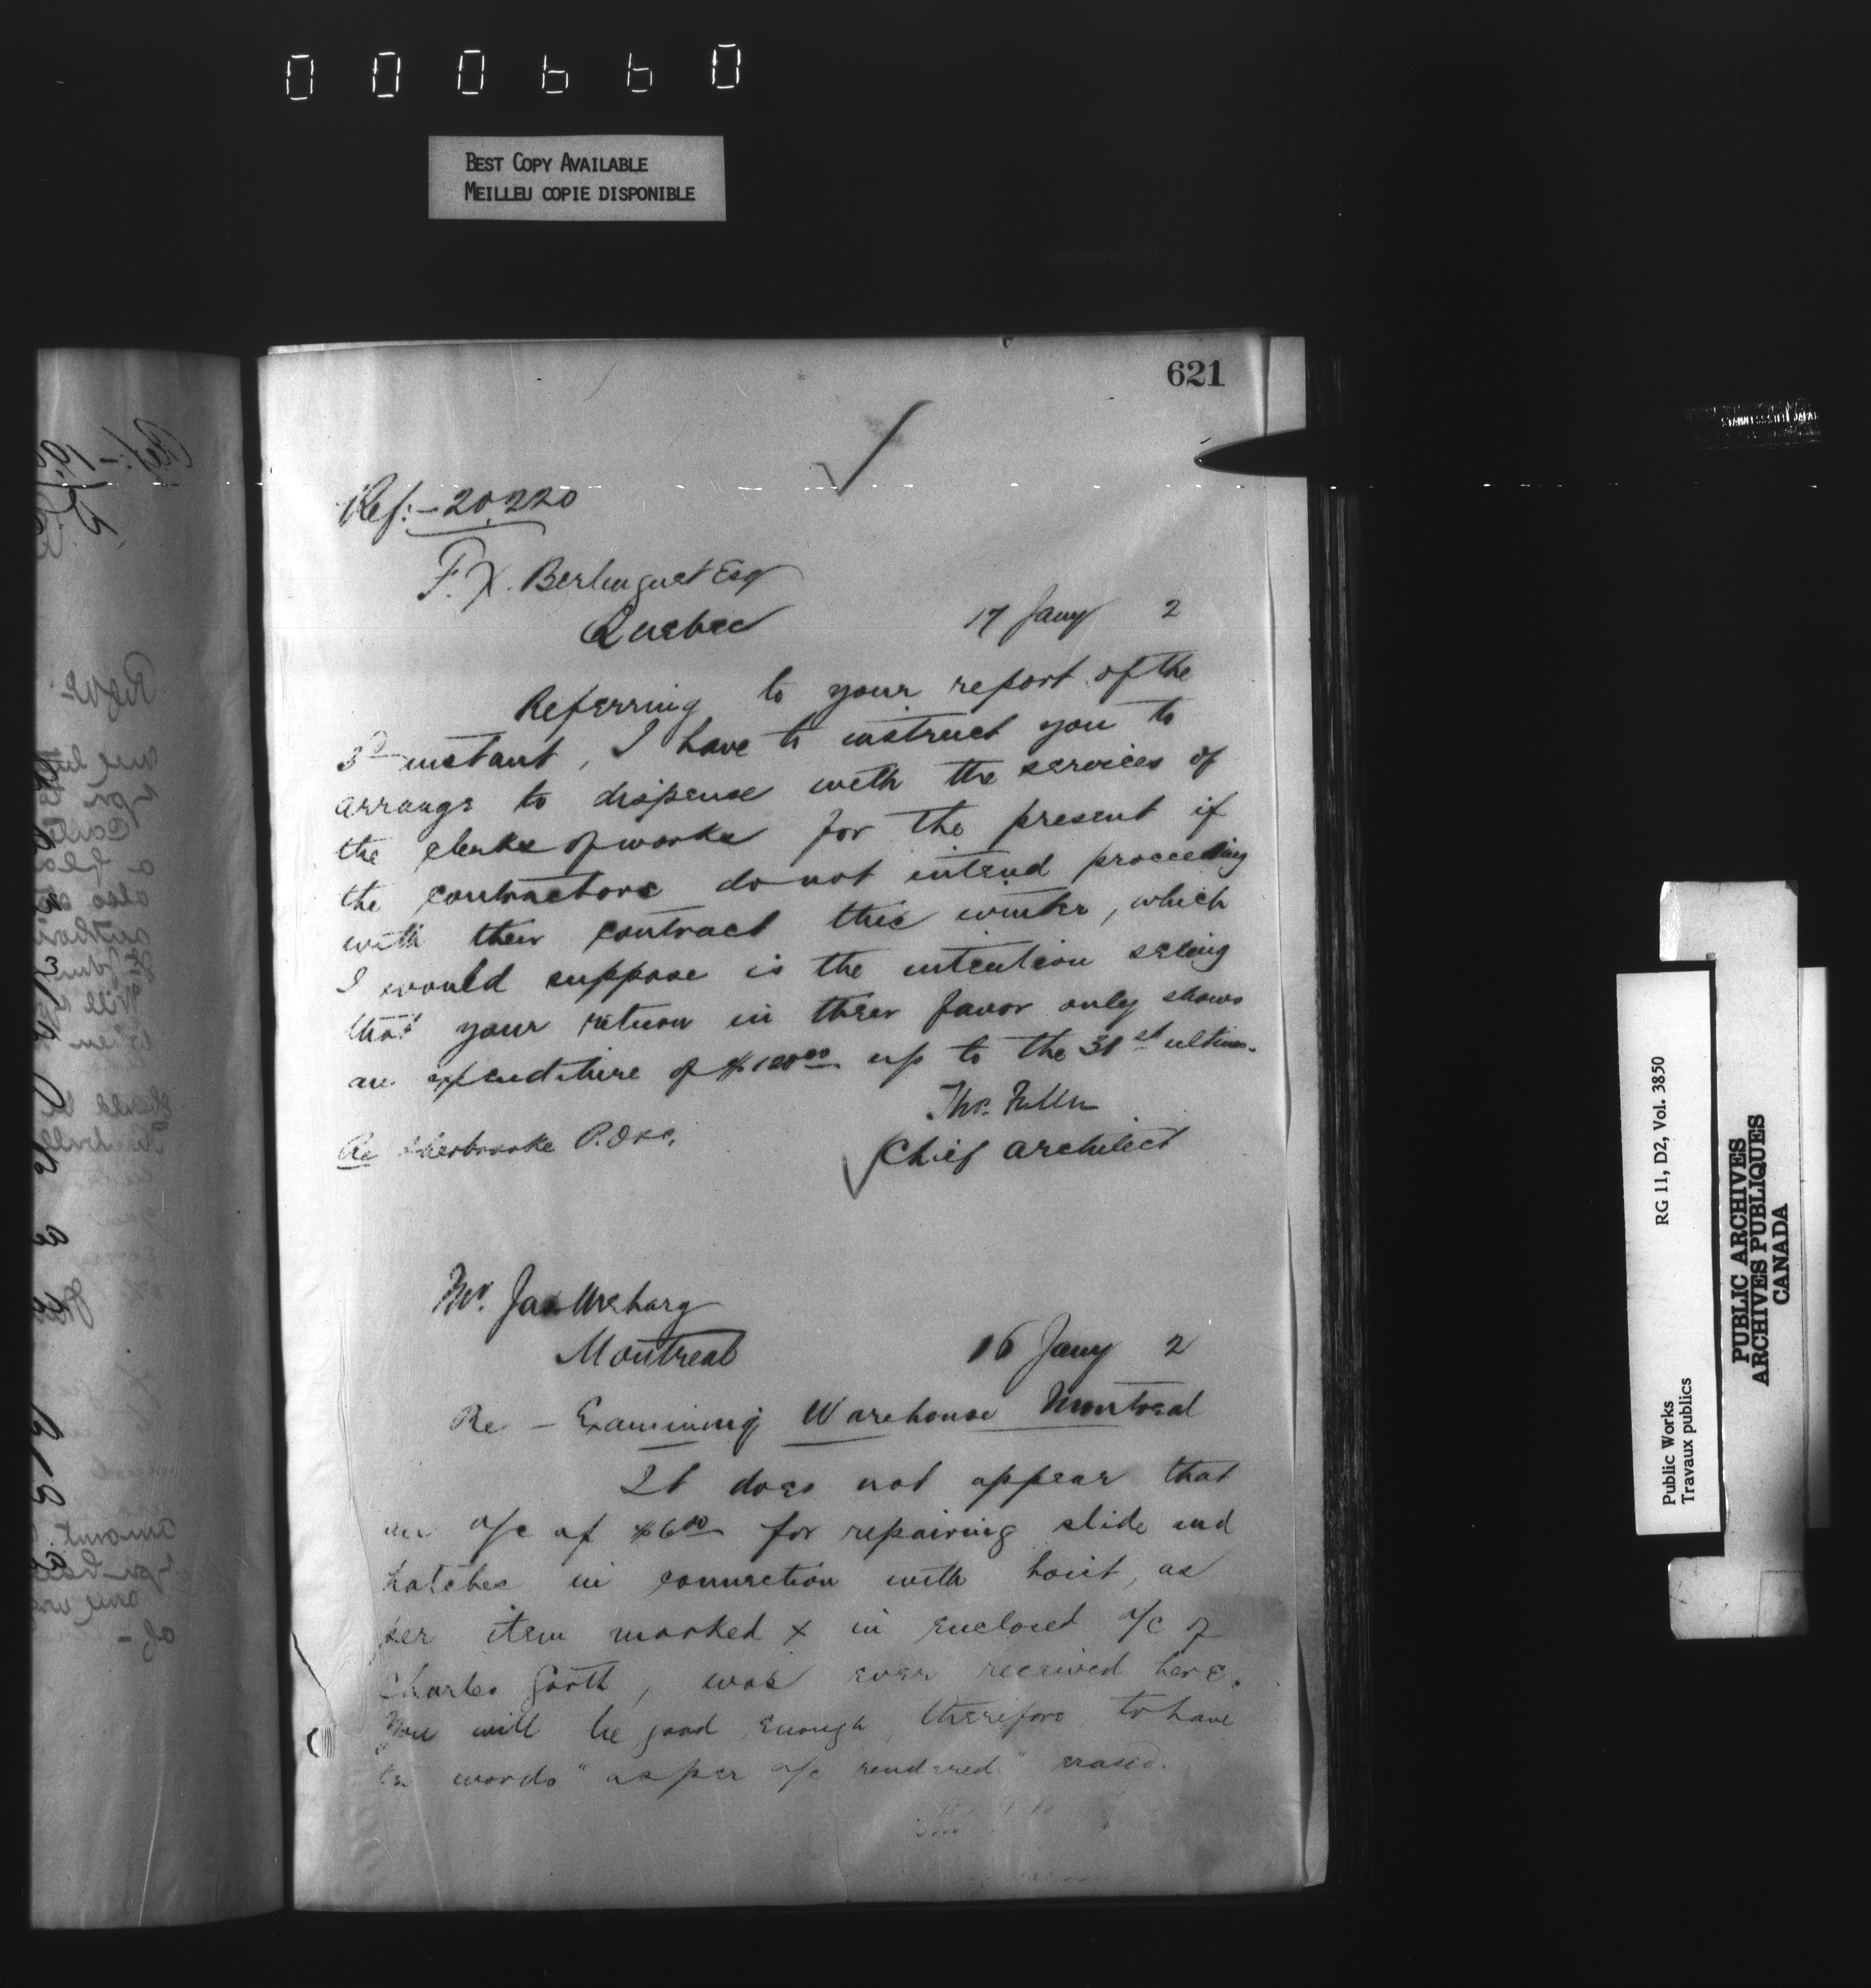 000660
BEST COPY AVAILABLE
MEILLEU COPIE DISPONIBLE
621
Ref:- 20,220
F. X. Berlinguet Esq
Quebec 17 Jany 2
Referring to your report of the
3d instant, I have to instruct you to
arrange to dispense with the services of
the clerks of works for the present if
the contractors do not intend proceeding
with their contract this winter, which
I would suppose is the intention seeing
that your return in their favor only shows
an expenditure of up to the 31st ultimo.
Thos. Fuller
Chief Architect
Re Sherbrooke P.O &c.
Mr. Jas
Montreal 16 Jany 2
Re - Examining Warehouse Montreal
It does not appear that
an a/c of $6.00 for repairing slide and
hatches in connection with hoist, as
per item marked x in enclosed a/c of
Charles Garth, was ever received here.
You will be good enough therefore to have
the words "as per a/c rendered" erased.
Public Works RG 11, D2, Vol. 3850
Travaux publics
PUBLIC ARCHIVES
ARCHIVES PUBLIQUES
CANADA